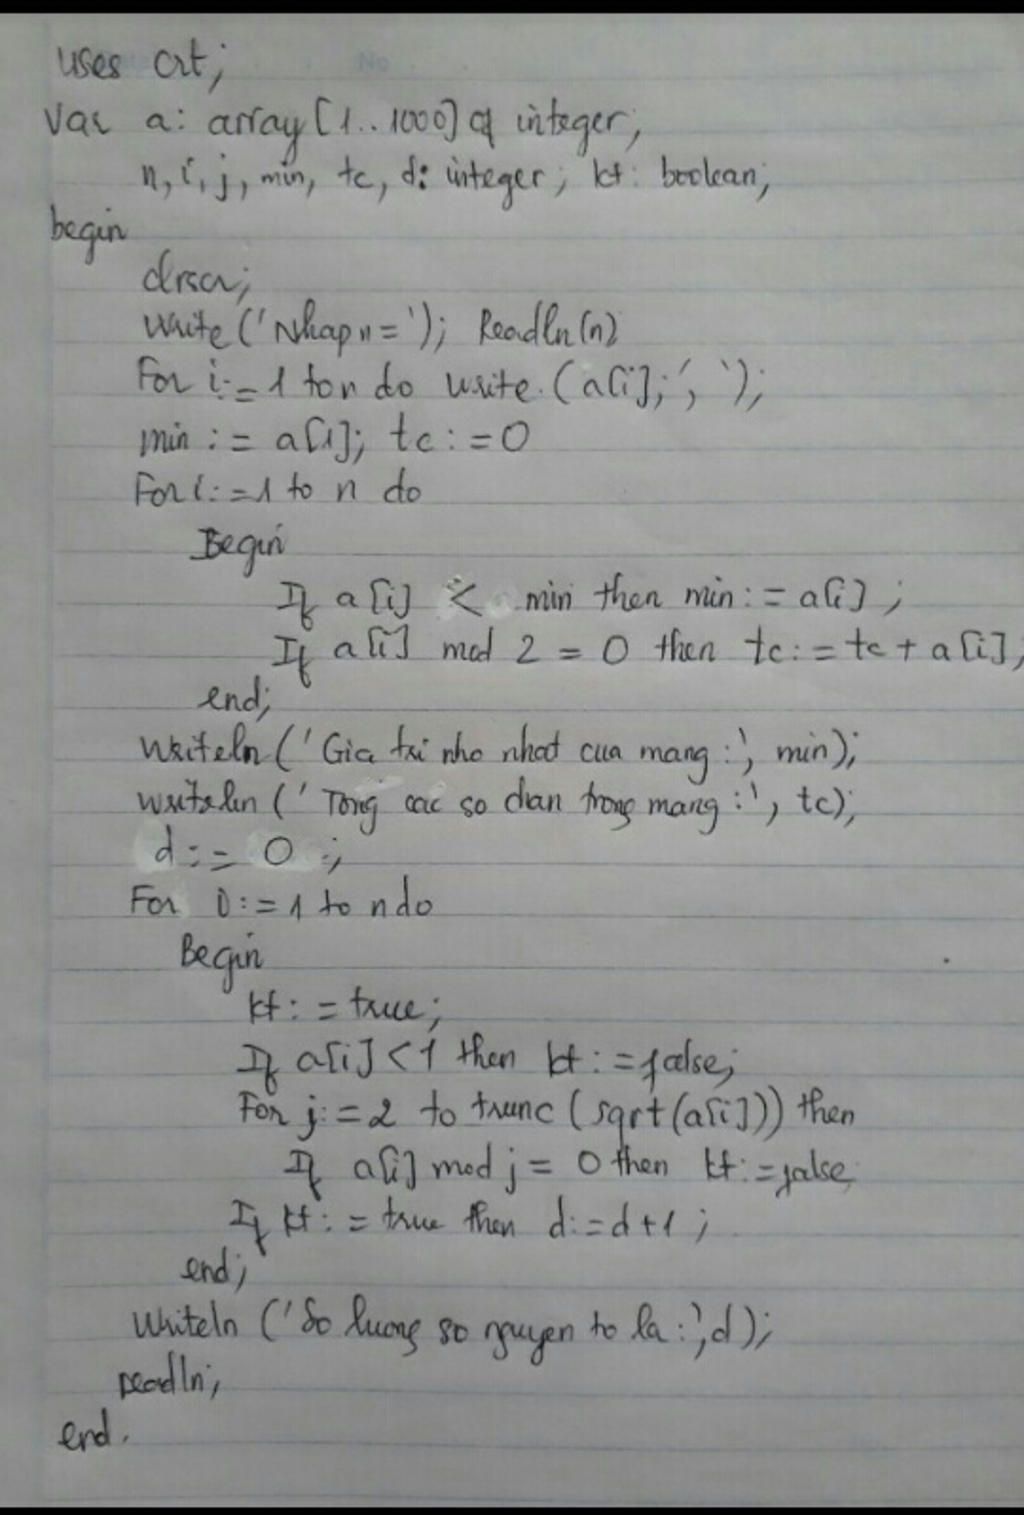 uses crt;
Var a: array [1..1000] of integer;
n, i, j, min, tc, d: integer; kt: boolean;
begin
clrscr;
Write ('Nhap n='); Readln (n)
For i:=1 to n do write (a[i];' ');
min := a[1]; tc:=0
For i:=1 to n do
Begin
If a[i] < min then min:=a[i];
If a[i] mod 2 = 0 then tc:=tc + a[i];
end;
Writeln ('Gia tri nho nhat cua mang:', min);
writeln ('Tong cac so chan trong mang:', tc);
d:=0;
For i:=1 to n do
Begin
kt:=true;
If a[i]<1 then kt:=false;
For j:=2 to trunc (sqrt(a[i])) then
If a[i] mod j = 0 then kt:=false
If kt:= true then d:=d+1;
end;
Writeln ('So luong so nguyen to la:',d);
readln;
end.